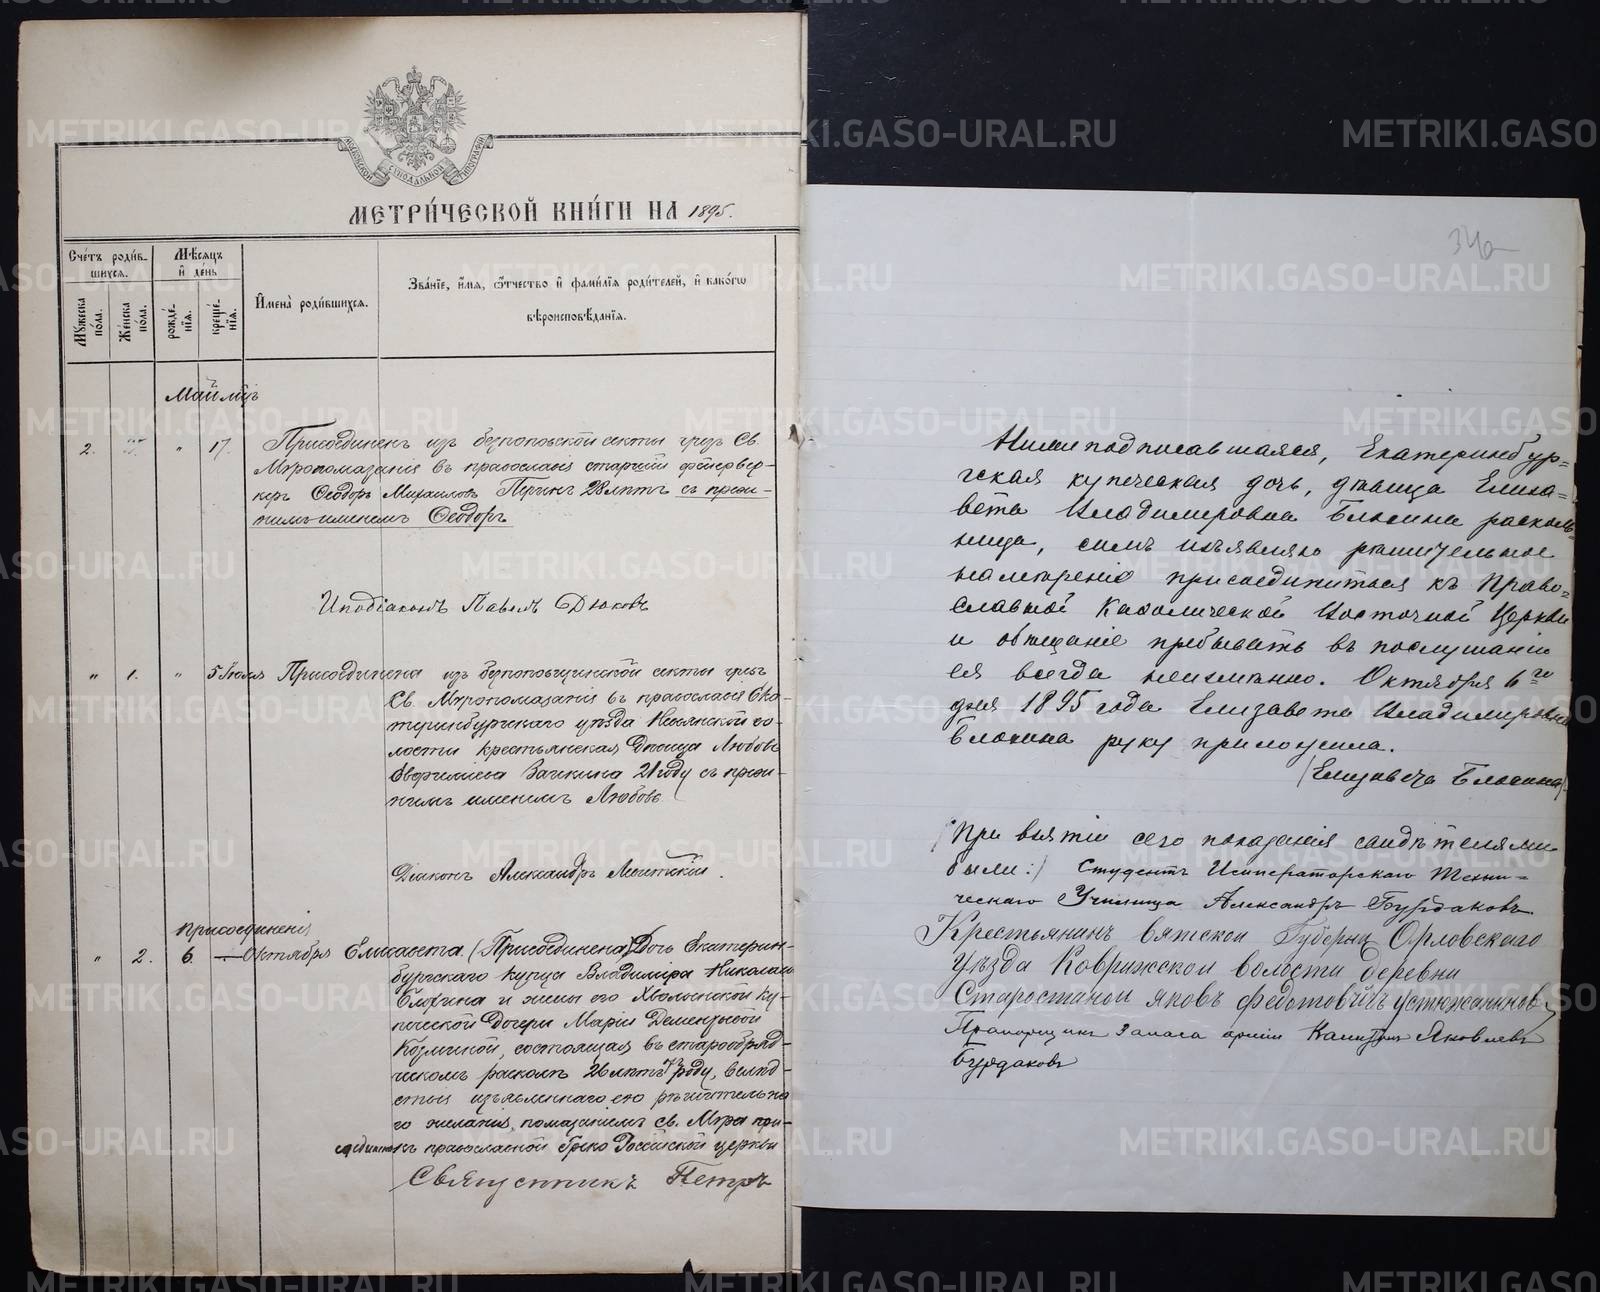 МОСКОВСКОЙ СУНОДАЛЬНОЙ ТИПОГРАФІИ
МЕТРИ́ЧЕСКОЙ КНИ́ГИ НА 1895.
Сче́тъ роди́в-
шихся.
Мѣ́сяцъ
и҆ де́нь
Мꙋ́жеска
по́ла.
Же́нска
по́ла.
рожде́-
нїя.
креще́-
нїя.
И҆мена̀ роди́вшихся.
Зва́нїе, и҆́мя, ѻ҆́тчество и҆ фами́лїя роди́телей, и҆ како́гѡ
вѣроисповѣ́данїя.
Май мѣц
2. " " 17. Присоединенъ изъ безпоповской секты чрезъ Св.
Мѵропомазаніе въ православіе старшій фейервер-
керъ Ѳеодоръ Михаиловъ 28 лѣтъ съ преж-
нимъ именемъ Ѳеодоръ
Иподіаконъ Павелъ Дюковъ
" 1. " 5 Іюля Присоединена изъ безпоповщинской секты чрезъ
Св. Мѵропомазаніе въ православіе Ека-
теринбургскаго уѣзда Невьянской во-
лости крестьянская дѣвица Любовь
Евфиміева 21 году съ преж-
нимъ именемъ Любовь
Діаконъ Александръ
присоединенія
" 2. 6. — Октября Елисавета. (Присоединена) Дочь Екатерин-
бургскаго купца Владиміра Николаев
Блохина и жены его Хвалынской ку-
печеской дочери Маріи Дементьевой
Козминой, состоящая въ старообряд-
ческомъ расколѣ 26 лѣтъ отъ роду, вслѣд-
ствіе изъявленнаго ею рѣшительна-
го желанія, помазаніемъ св. Мѵра при-
соединена къ православной Греко-Россійской церкви
Священникъ Петръ
34а
Нижеподписавшаяся, Екатеринбур-
гская купеческая дочь, дѣвица Елиза-
вета Владимировна Блохина расколь-
ница, симъ изъявляю рѣшительное
намѣреніе присоединиться къ Право-
славной Каѳолической Восточной Церкви
и обѣщаніе пребывать въ послушаніи
ея всегда неизмѣнно. Октября 6го
дня 1895 года Елизавета Владимировна
Блохина руку приложила.
(Елизавета Блохина)
(При взятіи сего показанія свидѣтелями
были:) Студентъ Императорскаго Техни-
ческаго Училища Александръ Бурдаковъ.
Крестьянинъ Вятской Губерни Орловскаго
Уѣзда Коврижской волости деревни
Старостиной Яковъ Федотовичъ Устюжаниновъ
Прапорщикъ Запаса арміи Яковлевъ
Бурдаковъ
METRIKI.GASO-URAL.RU